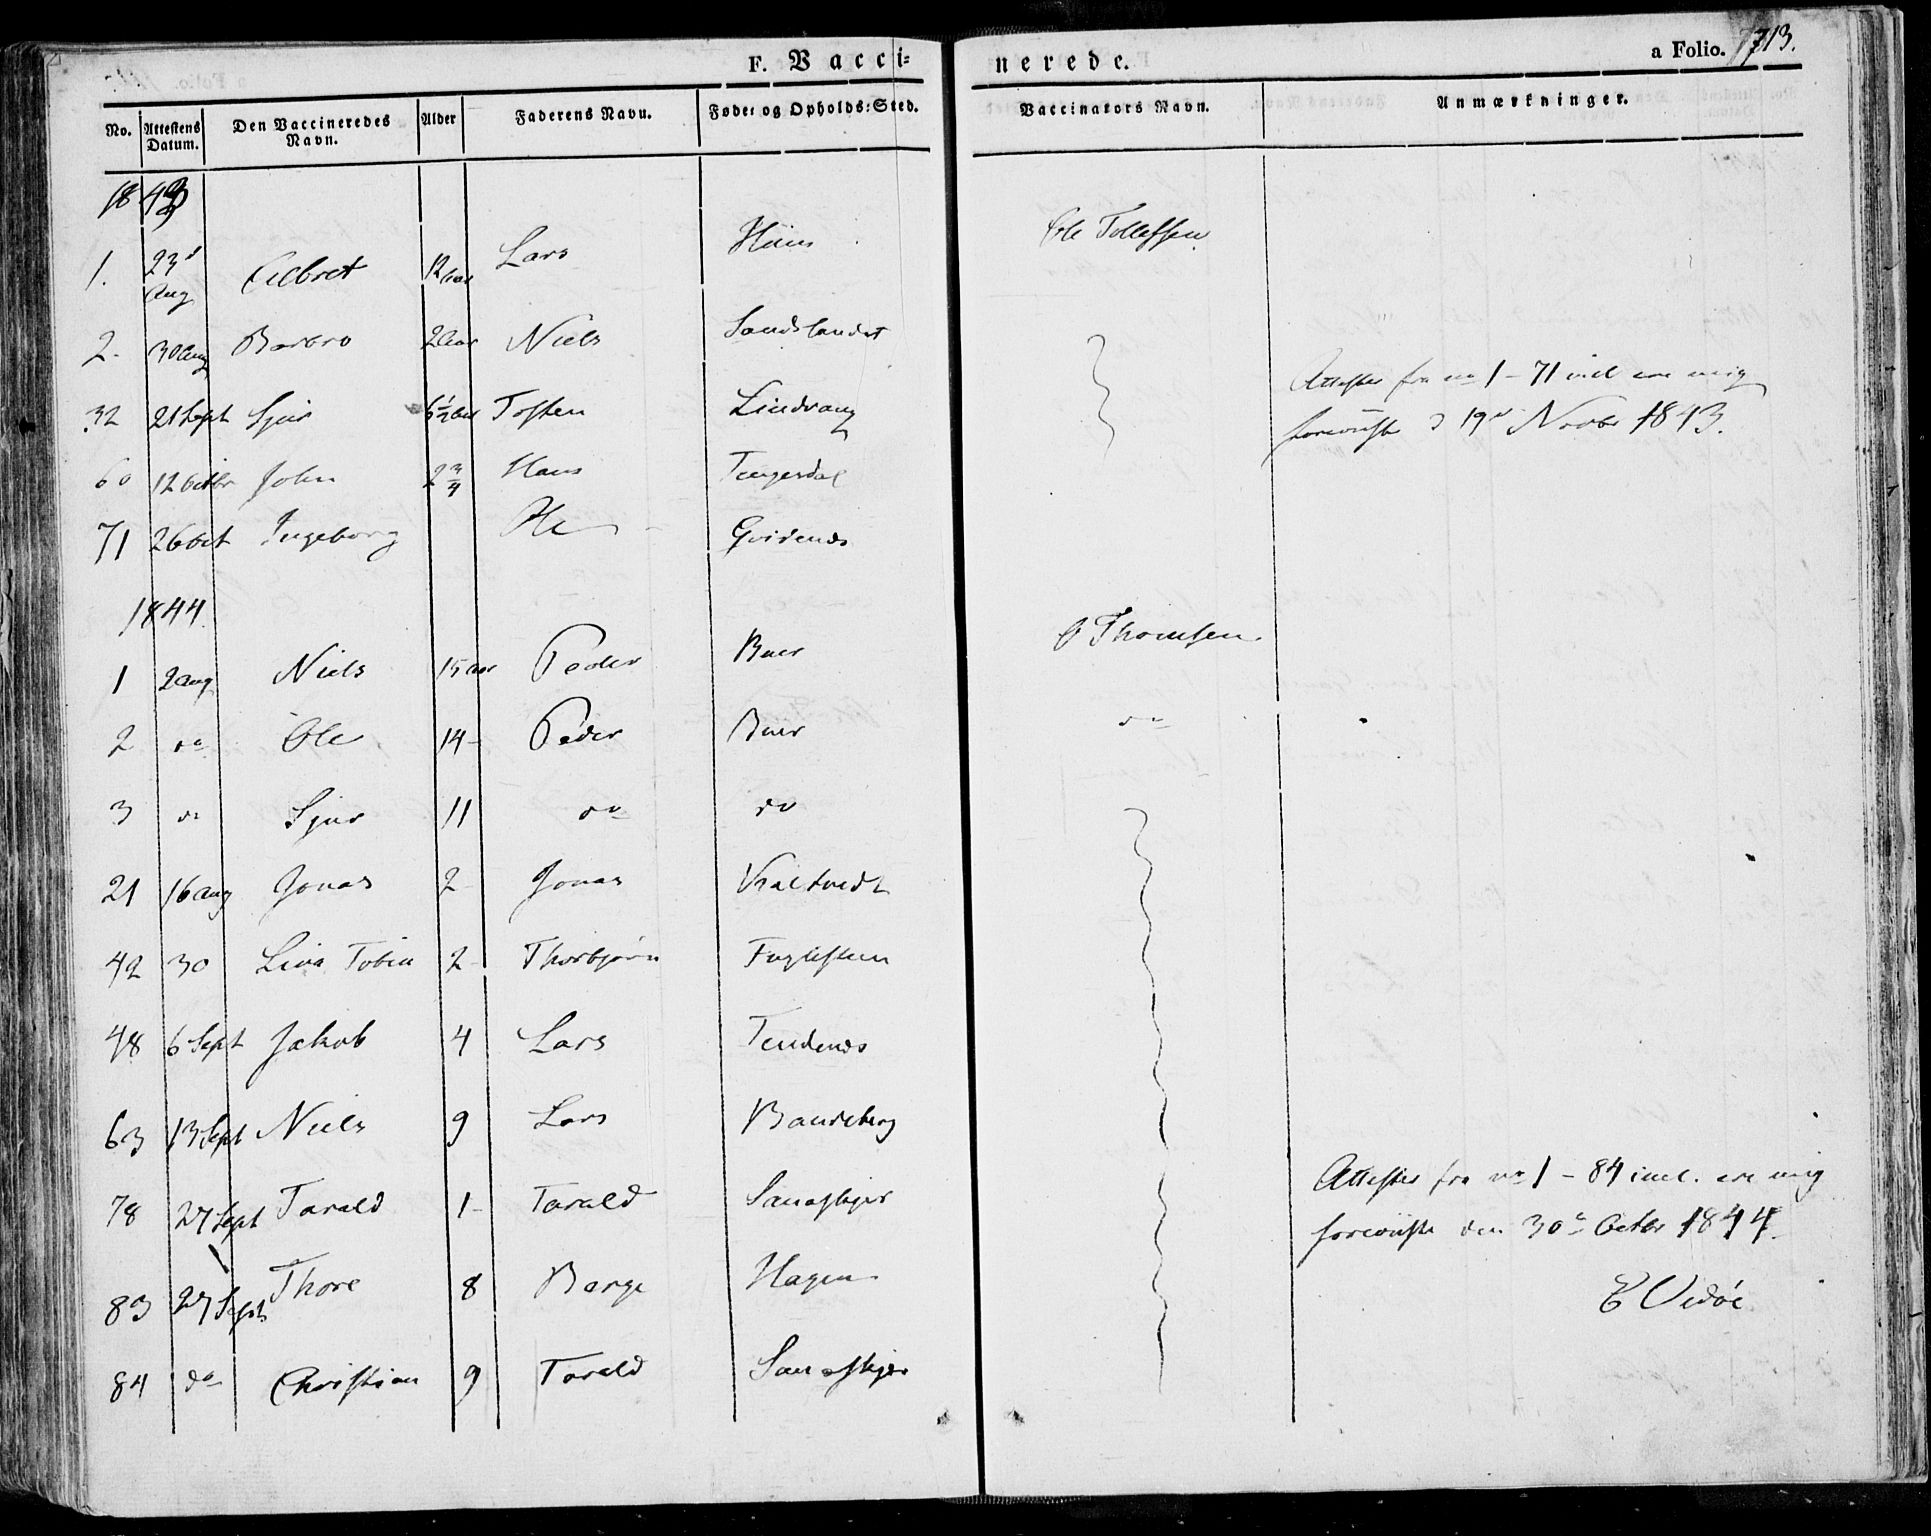 F. Vacci-
nerede.
a Folio. 713.
No. Attestens Datum. Den Vaccineredes Navn. Alder Faderens Navn. Føde- og Opholds-Sted. Vaccinators Navn. Anmærkninger.
1843
1. 23d Aug Elbret 12 aar Lars Ole Tollefsen
2. 30 Aug Barbro 2 Aar Niels Sandslandet
32 21 Sept Sjur 6½ aar Tosten Lindvang
Attester fra no 1 - 71 incl ere mig
foreviiste d 19d Novbr 1843.
60 12 Octbr John 2¾ Hans Tengesdal
71 26 Oct Ingeborg Ole Qvidenes
1844
1 2 aug Niels 15 aar Peder Buer O Thomsen
2 do Ole 14 - Peder Buer do
3 do Sjur 11 do do
21 16 aug Jonas 2 Jonas Vraltvedt
42 30 Liva Tobia 2 - Thorbjørn Fuglesteen
48 6 Sept Jakob 4 Lars Tendenes
63 13 Sept Niels 9 Lars Bandeberg
78 27 Sept Tarald 1 - Tarald
Attester fra no 1 - 84 incl. ere mig
foreviiste den 30te Octbr 1844.
83 27 Sept Thore 8 Børge Hagen
E Vidøe
84 do Christian 9 Tarald